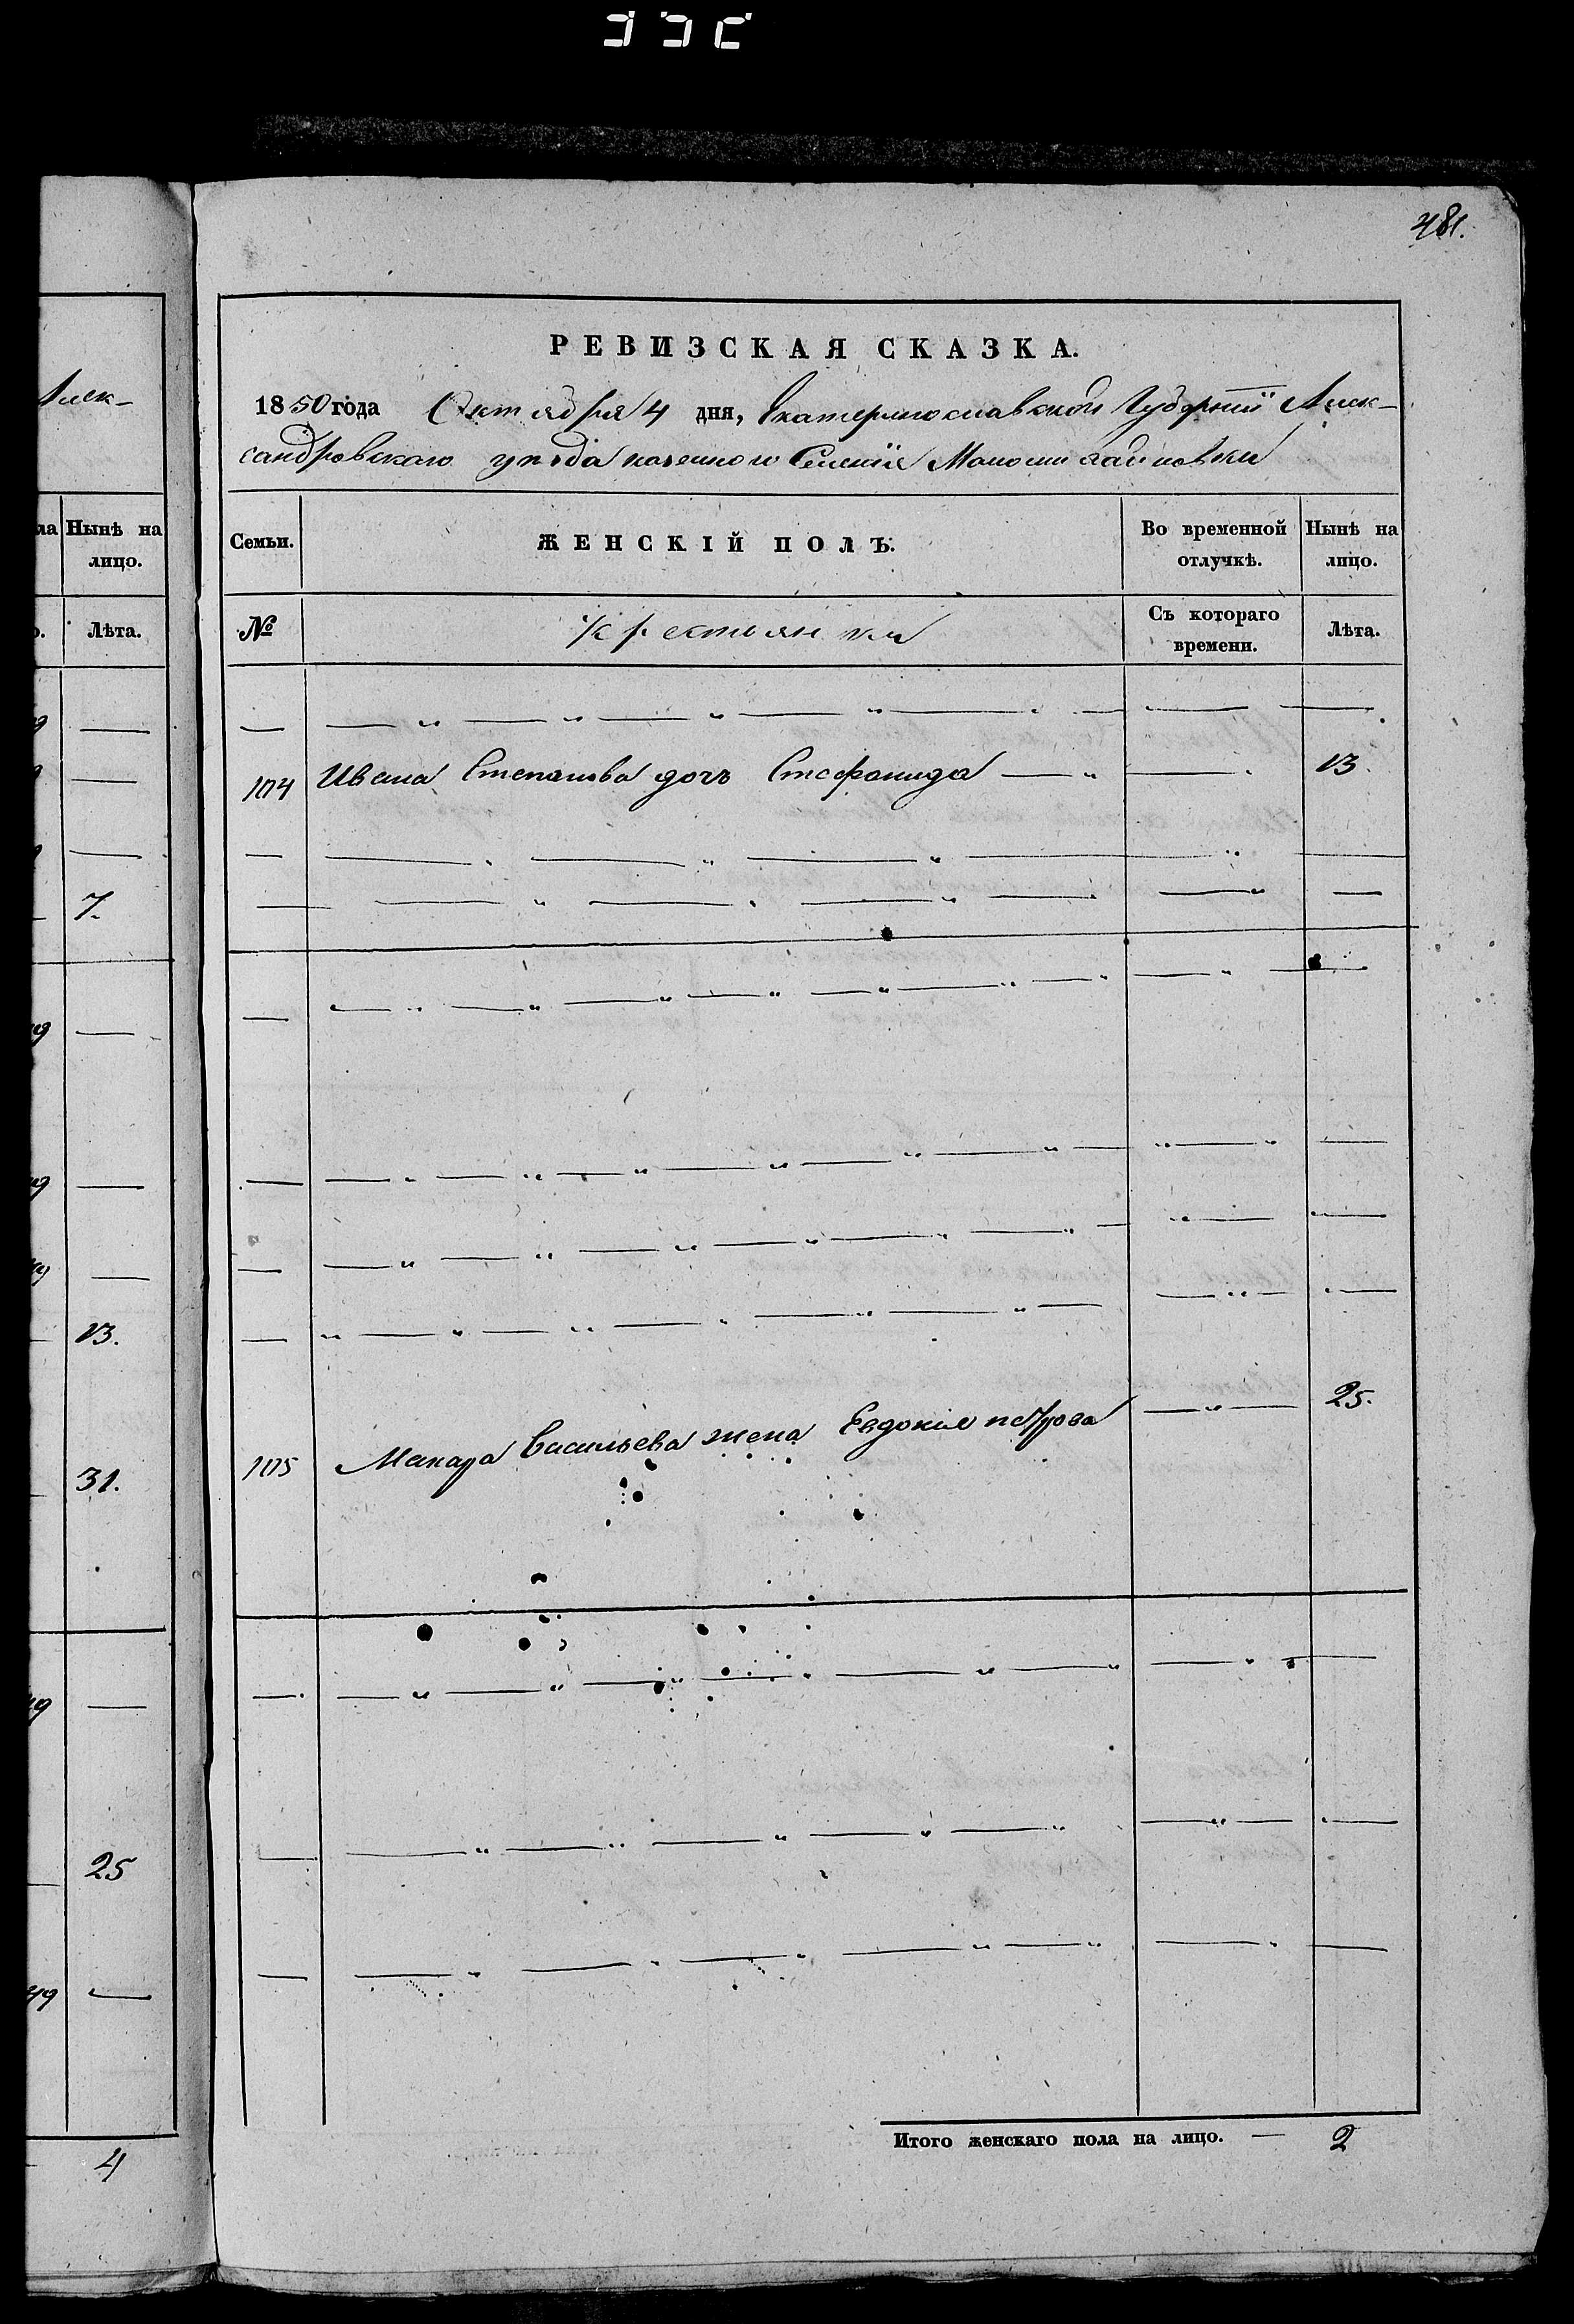 481.
Алек-
РЕВИЗСКАЯ СКАЗКА.
1850 года Октября 4 дня, Екатеринославской Губернии Алек-
сандровскаго уезда казенного Селения
ла Нынѣ на лицо.
Лѣта.
Семьи. ЖЕНСКІЙ ПОЛЪ. Во временной отлучкѣ. Нынѣ на лицо.
№ Крестьянки Съ котораго времени. Лѣта.
104 Ивана Степанова дочь Стефанида — 13.
7.
13.
105 Макара Васильева жена Евдокия петрова — 25.
31.
25
Итого женскаго пола на лицо. — 2
4